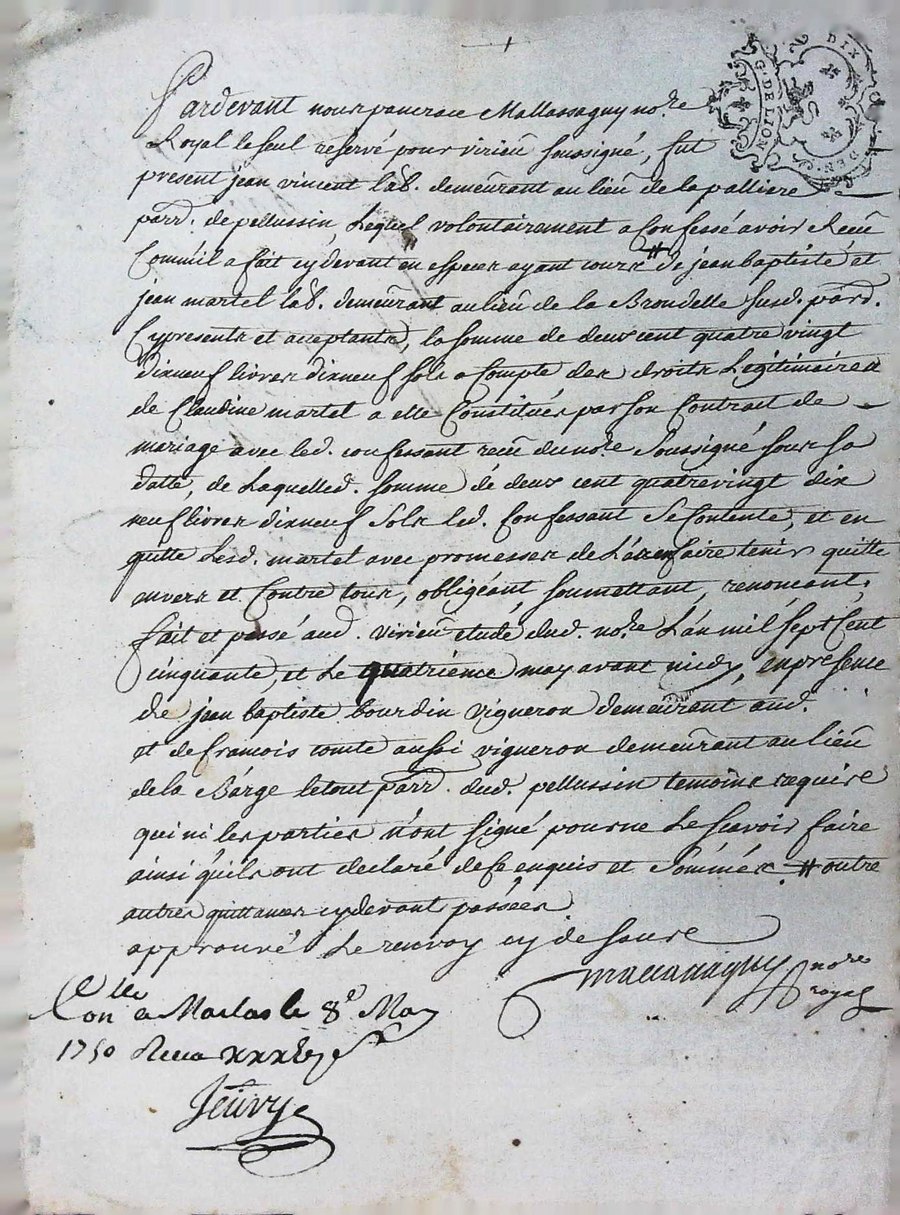 G. DE LION DIX DEN.
Pardevant nous pancrace Mallassagny no.re
Royal le seul reservé pour virieu soussigné, fut
present jean vincent lab. demeurant au lieu de la palliere
parr. de pellussin, Lequel volontairement a Confessé avoir Receu
Comm'il a fait cydevant en especes ayant cours # de jean baptiste et
jean martel lab. demeurant au lieu de la Brondelle susd. parr.
Cypresents et acceptants, la somme de deux cent quatre vingt
dixneuf livres dixneuf sols a Compte des droits Légitimaires
de Claudine martel a elle Constitués par son Contrait de
mariage avec led. confessant receu du no.re soussigné sous sa
datte, de Laquelled. somme de deux cent quatrevingt dix
neuf livres dixneuf sols led. Confessant se Contente, et en
quitte Lesd. martel avec promesses de L'en faire tenir quitte
envers et Contre tous, obligéant, soumettant, renoncant,
fait et passé aud. virieu étude dud. no.re L'an mil sept Cent
cinquante, et Le quatrieme may avant midy, en presence
de jean baptiste bourdin vigneron demeurant aud.
et de francois comte aussi vigneron demeurant au lieu
de la Barge le tout parr. dud. pellussin temoins requis
qui ni les parties n'ont signé pour ne Le scavoir faire
ainsi qu'ils ont declaré de ce enquis et sommés # outre
autres quittances cydevant passées
approuvé Le renvoy cy dessus
Mallassagny no.re
royal
C.lle
on a Maclas le 8e May
1750 Receu